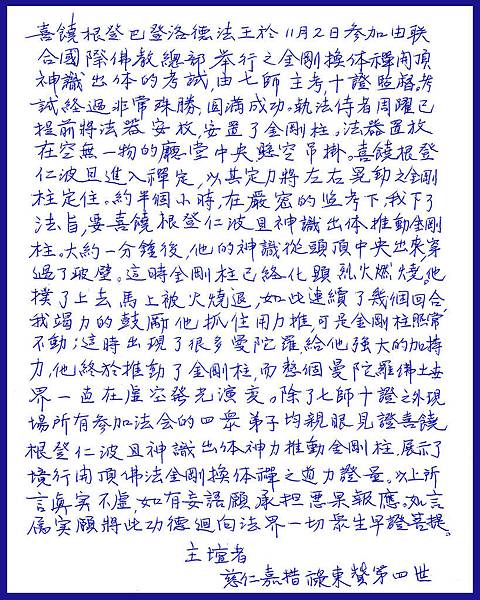 喜饒根登巴登洛德法王於11月2日參加由联
合國際佛教總部舉行之金剛換体禪開頂
神識出体的考試,由七師主考,十證監督。考
試終過非常殊勝,圓滿成功。執法侍者周曜已
提前將法器安放,安置了金剛柱。法器置放
在空無一物的廳堂中央懸空吊掛。喜饒根登
仁波且進入禪定,以其定力將左右晃動之金剛
柱定住。約半個小時,在嚴密的监考下,我下了
法旨,要喜饒根登仁波且神識出体推動金剛
柱。大約一分鐘後,他的神識從頭頂中央出來,穿
過了玻壁。這時金剛柱已經化顯烈火燃燒。他
撲了上去馬上被火燒退,如此連續了幾個回合,
我竭力的鼓勵他抓住用力推,可是金剛柱照常
不動;這時出現了很多曼陀羅,給他強大的加持
力,他終於推動了金剛柱,而整個曼陀羅佛土世
界一直在虛空發光演变。除了七師十證之外,現
場所有参加法会的四眾弟子均親眼見證喜饒
根登仁波且神識出体神力推動金剛柱,展示了
境行開頂佛法金剛換体禪之道力證量。以上所
言真实不虛,如有妄語願承担悪果報應。如言
属实願將此功德迴向法界一切眾生早證菩提。
主壇者
慈仁嘉措祿東贊第四世